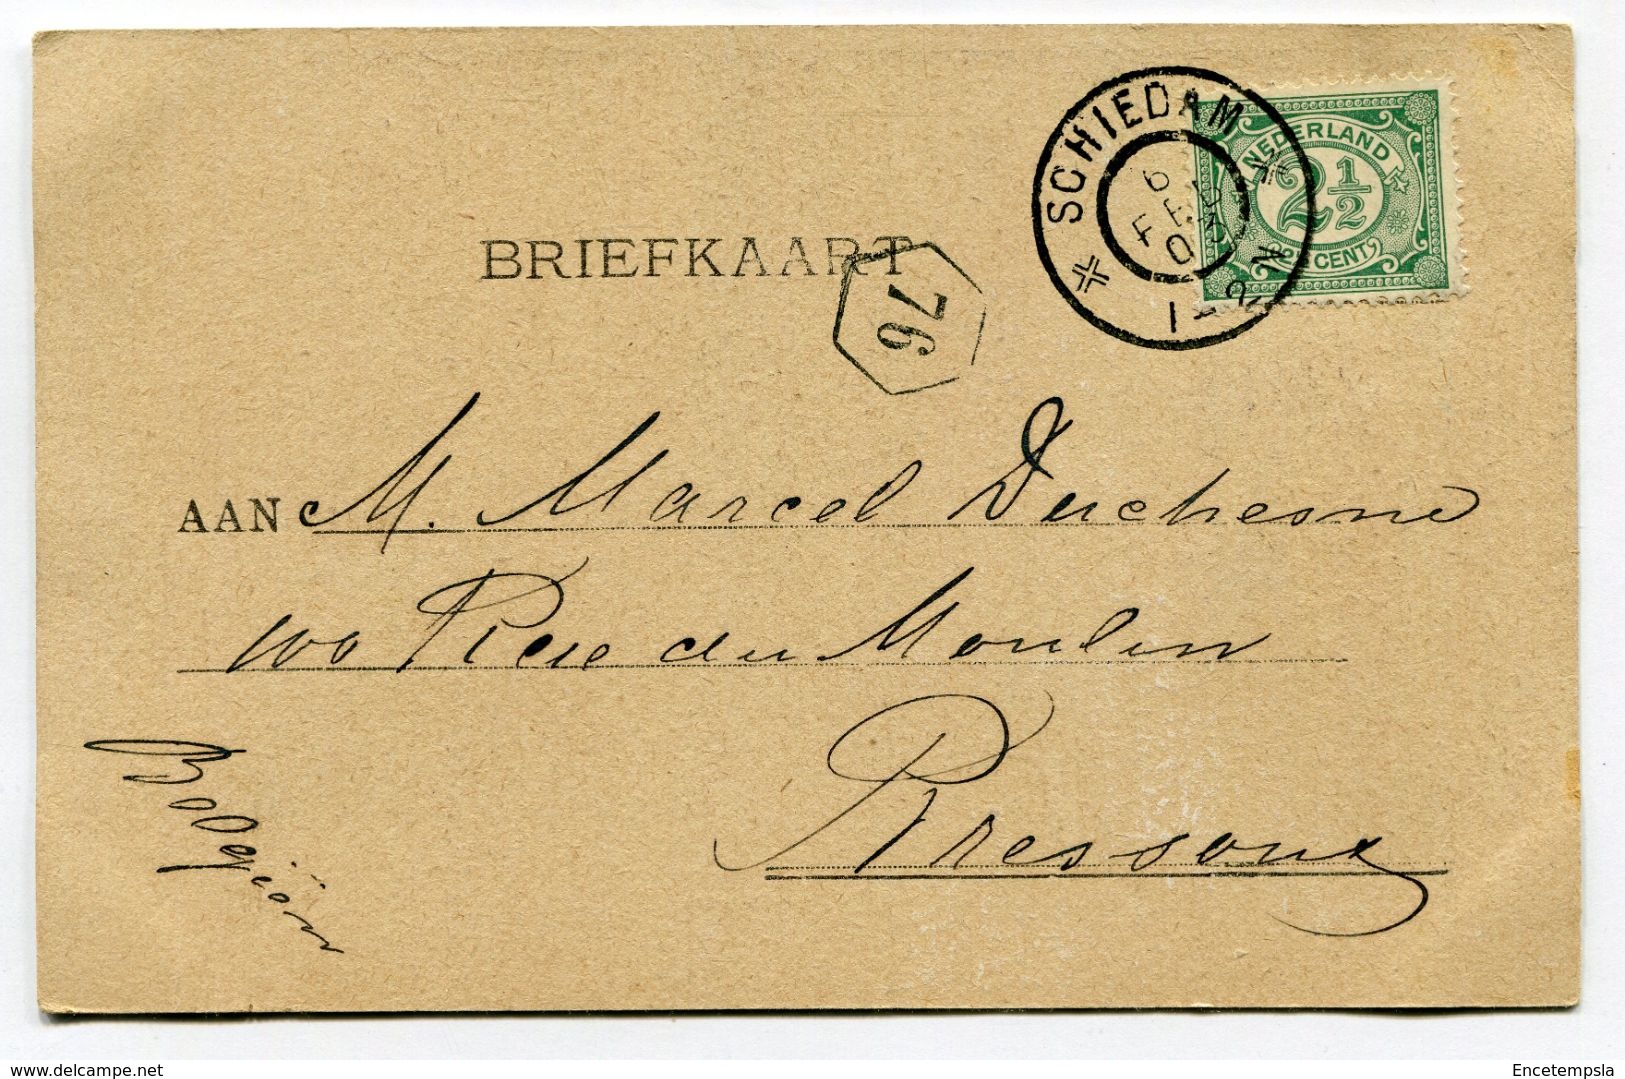 SCHIEDAM
6 FEB 03
NEDERLAND
2 1/2
CENT
BRIEFKAART
76
AAN M. Marcel Duchesne
100 Rue du Moulin
Bressoux
Belgiën
www.delcampe.net
Encetempsla